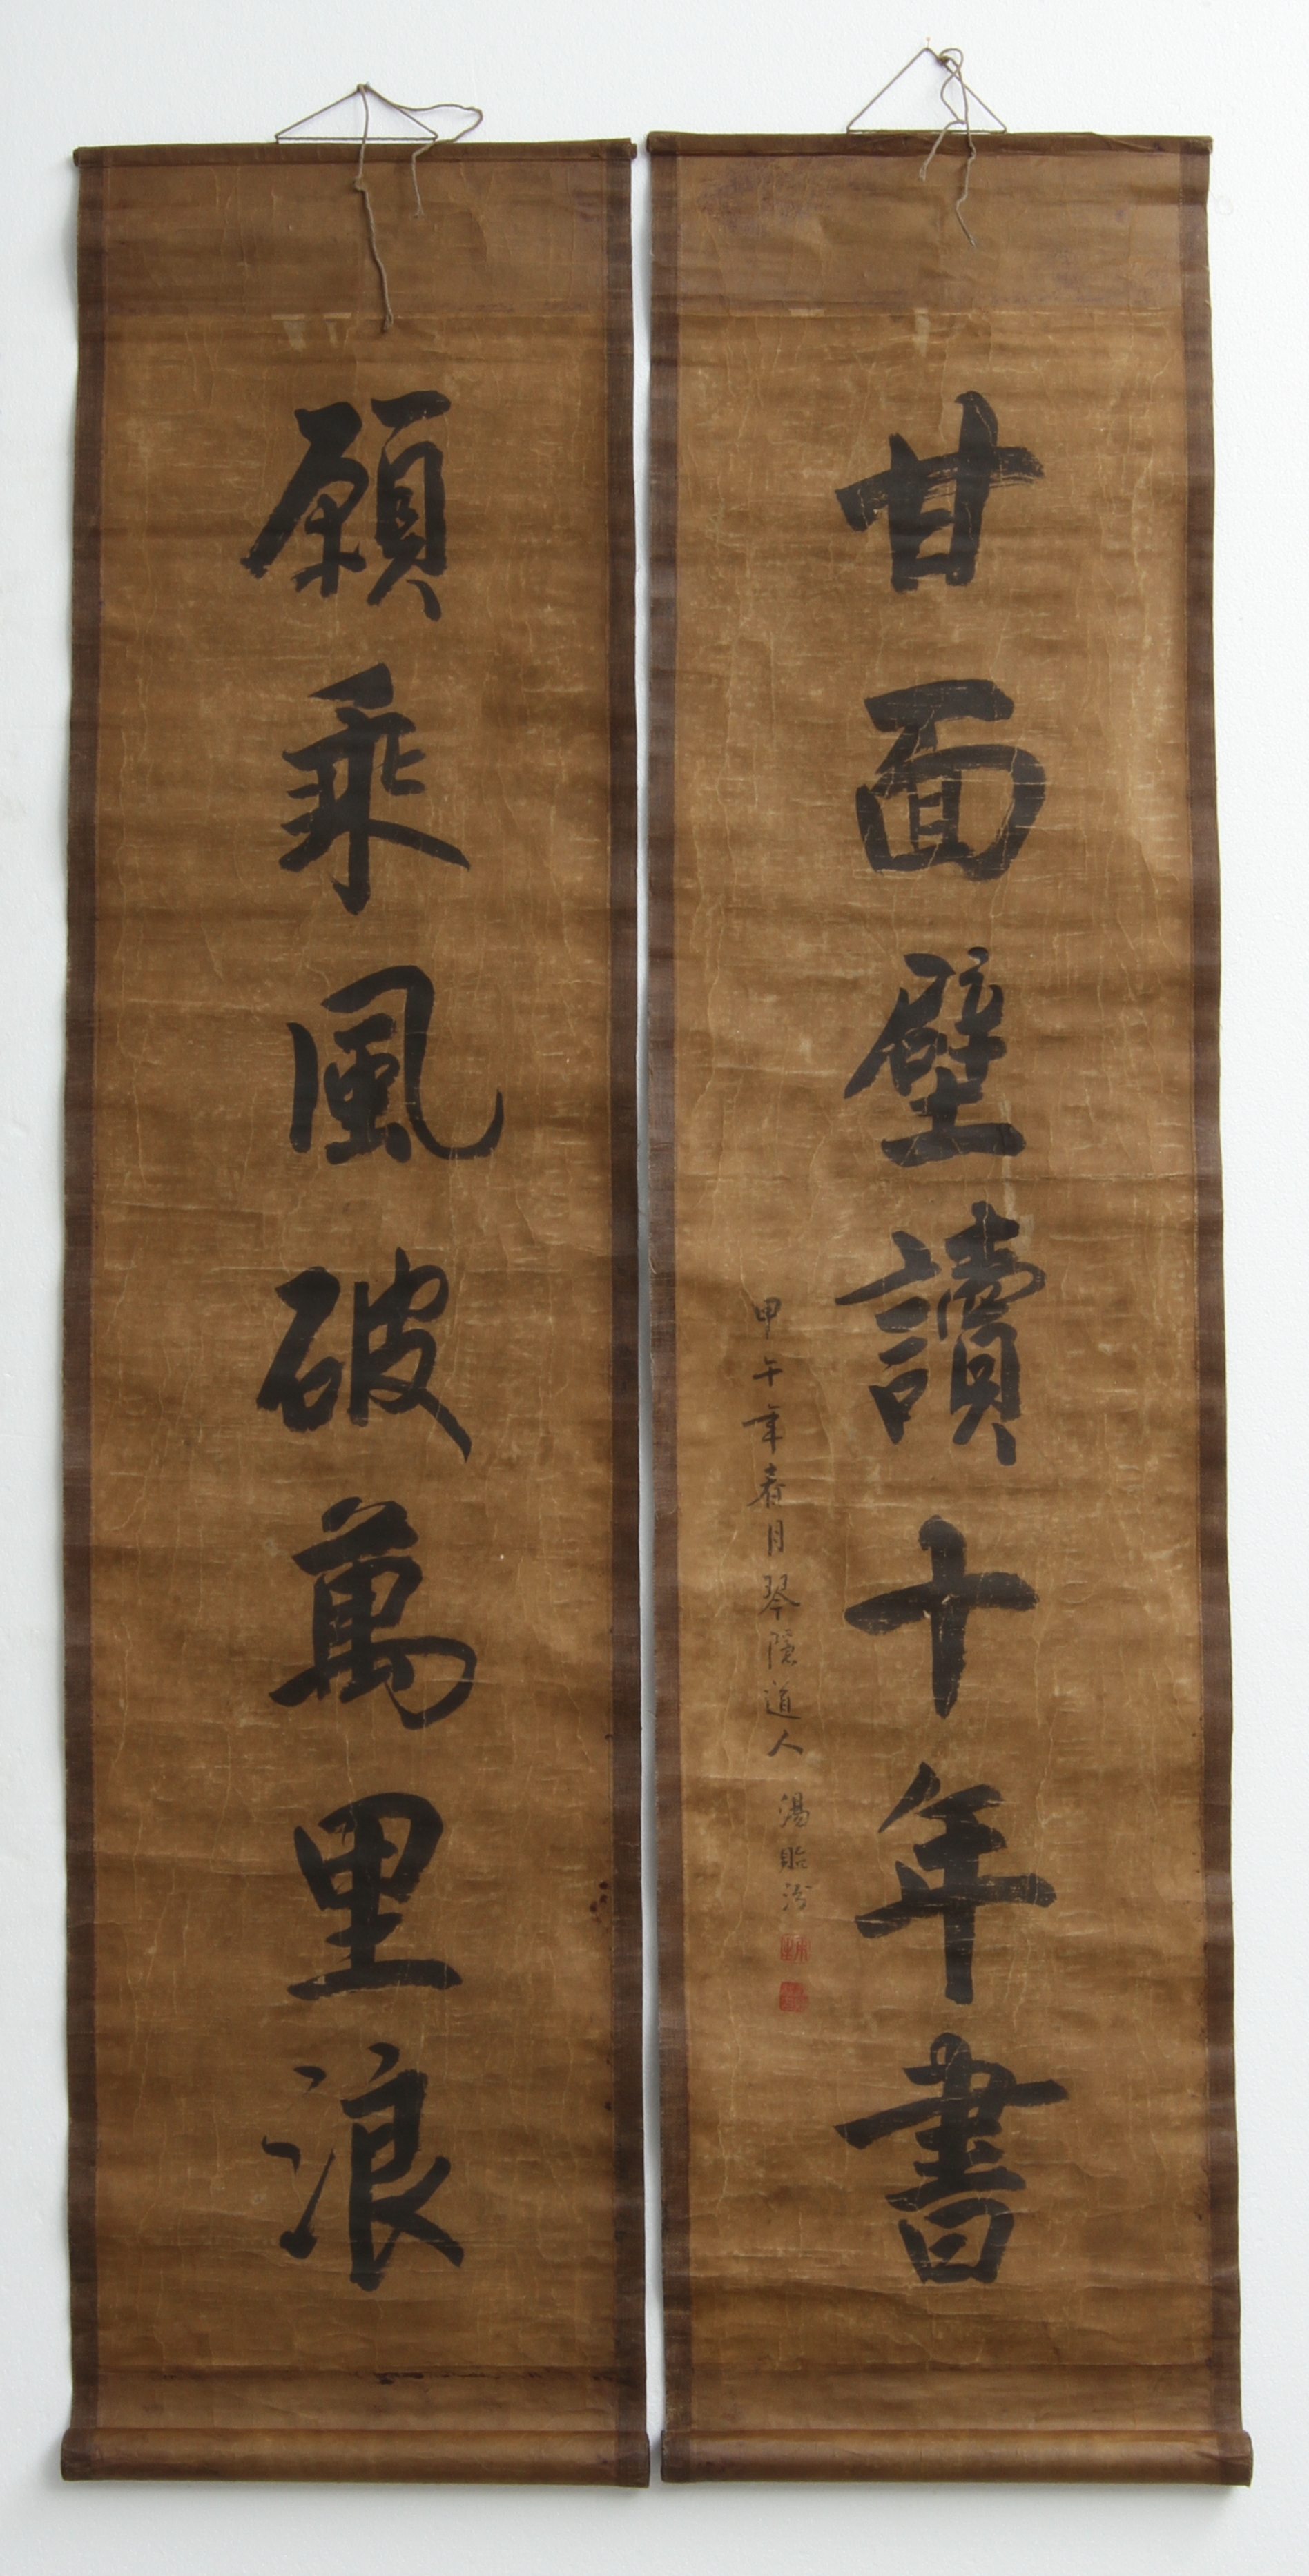 甘面壁讀十年書
甲午年春月琴隱道人 湯貽汾
願乘風破萬里浪